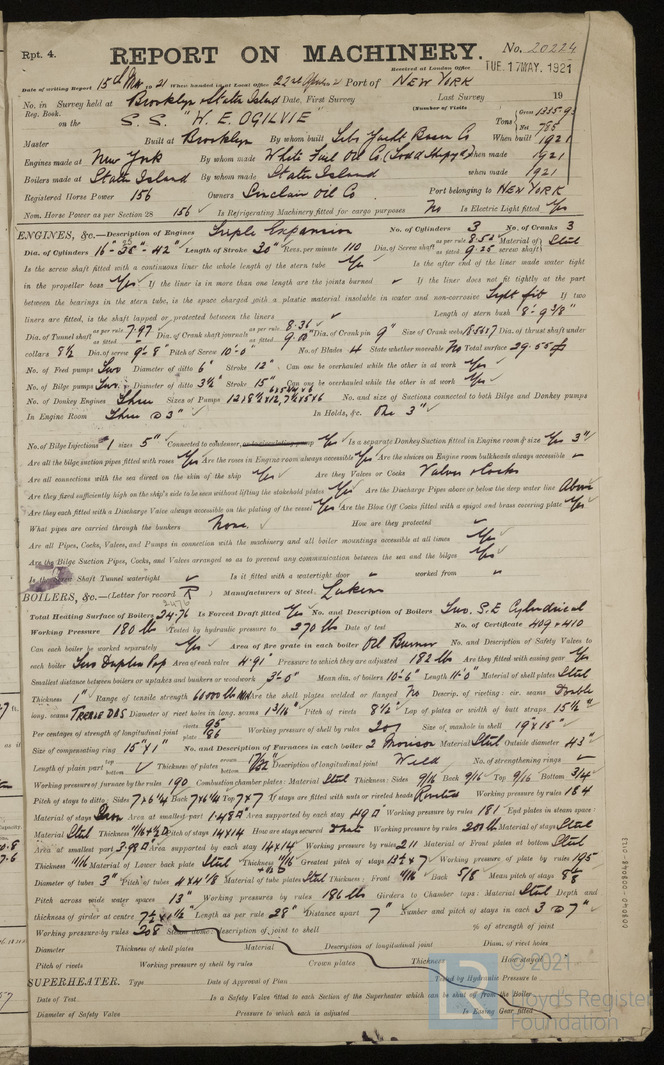 Rpt. 4.
REPORT ON MACHINERY.
No. 20224
Received at London Office
TUE. 17 MAY. 1921
Date of writing Report 15th 1921 When handed in at Local Office 22nd Port of NEW YORK
No. in Survey held at Brooklyn & Staten Island Date, First Survey Last Survey 19
Reg. Book. (Number of Visits
on the S.S. "W. E. OGILVIE" Tons Gross 1335.93 Net 785
Master Built at Brooklyn By whom built When built 1921
Engines made at New York By whom made White Fuel Oil Co. when made 1921
Boilers made at Staten Island By whom made Staten Island when made 1921
Registered Horse Power 156 Owners Sinclair Oil Co. Port belonging to NEW YORK
Nom. Horse Power as per Section 28 156 Is Refrigerating Machinery fitted for cargo purposes No Is Electric Light fitted Yes
ENGINES, &c.—Description of Engines Triple Expansion No. of Cylinders 3 No. of Cranks 3
Dia. of Cylinders 16"- 42" Length of Stroke 30" Revs. per minute 110 Dia. of Screw shaft as per rule 8.52" as fitted 9.25 Material of screw shaft Steel
Is the screw shaft fitted with a continuous liner the whole length of the stern tube Yes Is the after end of the liner made water tight
in the propeller boss Yes If the liner is in more than one length are the joints burned If the liner does not fit tightly at the part
between the bearings in the stern tube, is the space charged with a plastic material insoluble in water and non-corrosive Tight fit If two
liners are fitted, is the shaft lapped or protected between the liners Length of stern bush 8'-9 3/8"
Dia. of Tunnel shaft as per rule 7.97 as fitted Dia. of Crank shaft journals as per rule 8.36 as fitted Dia. of Crank pin 9" Size of Crank webs Dia. of thrust shaft under
collars 8 1/2 Dia. of screw 9'-8" Pitch of Screw 10'-0" No. of Blades 4 State whether moveable No Total surface 29.55
No. of Feed pumps Two Diameter of ditto 6" Stroke 12" Can one be overhauled while the other is at work Yes
No. of Bilge pumps Two Diameter of ditto 3 1/2" Stroke 15" Can one be overhauled while the other is at work Yes
No. of Donkey Engines Three Sizes of Pumps No. and size of Suctions connected to both Bilge and Donkey pumps
In Engine Room Three @ 3" In Holds, &c. One 3"
No. of Bilge Injections 1 sizes 5" Connected to condenser, or to circulating pump Yes Is a separate Donkey Suction fitted in Engine room & size Yes 3"
Are all the bilge suction pipes fitted with roses Yes Are the roses in Engine room always accessible Yes Are the sluices on Engine room bulkheads always accessible
Are all connections with the sea direct on the skin of the ship Yes Are they Valves or Cocks Valves & Cocks
Are they fixed sufficiently high on the ship's side to be seen without lifting the stokehold plates Yes Are the Discharge Pipes above or below the deep water line Above
Are they each fitted with a Discharge Valve always accessible on the plating of the vessel Yes Are the Blow Off Cocks fitted with a spigot and brass covering plate Yes
What pipes are carried through the bunkers None. How are they protected
Are all Pipes, Cocks, Valves, and Pumps in connection with the machinery and all boiler mountings accessible at all times Yes
Are the Bilge Suction Pipes, Cocks, and Valves arranged so as to prevent any communication between the sea and the bilges Yes
Is the Screw Shaft Tunnel watertight Is it fitted with a watertight door worked from
BOILERS, &c.—(Letter for record R) Manufacturers of Steel, Lukens
2476
Total Heating Surface of Boilers 2476 Is Forced Draft fitted Yes No. and Description of Boilers Two. S.E. Cylindrical
Working Pressure 180 lbs Tested by hydraulic pressure to 270 lbs Date of test No. of Certificate 409 & 410
Can each boiler be worked separately Yes Area of fire grate in each boiler Oil Burner No. and Description of Safety Valves to
each boiler Two Duplex Pop Area of each valve 4.91" Pressure to which they are adjusted 182 lbs Are they fitted with easing gear Yes
Smallest distance between boilers or uptakes and bunkers or woodwork 3'-0" Mean dia. of boilers 10'-6" Length 11'-0" Material of shell plates Steel
Thickness 1" Range of tensile strength Are the shell plates welded or flanged No Descrip. of riveting: cir. seams Double
long. seams TREBLE DBS Diameter of rivet holes in long. seams 1 3/16" Pitch of rivets 8 1/2" Lap of plates or width of butt straps 15 1/4"
Per centages of strength of longitudinal joint rivets 95 plate 86 Working pressure of shell by rules 201 Size of manhole in shell 19" x 15"
Size of compensating ring 15" x 1" No. and Description of Furnaces in each boiler 2 Morison Material Steel Outside diameter 43"
Length of plain part top bottom Thickness of plates crown bottom 17/32 Description of longitudinal joint Weld No. of strengthening rings
Working pressure of furnace by the rules 190 Combustion chamber plates: Material Steel Thickness: Sides 9/16 Back 9/16 Top 9/16 Bottom 3/4
Pitch of stays to ditto: Sides 7 x 6 1/4 Back 7 x 6 1/4 Top 7 x 7 If stays are fitted with nuts or riveted heads Riveted Working pressure by rules 184
Material of stays Iron Area at smallest part 1.48 Area supported by each stay 49 Working pressure by rules 181 End plates in steam space:
Material Steel Thickness Pitch of stays 14 x 14 How are stays secured Working pressure by rules Material of stays Steel
Area at smallest part Area supported by each stay 14 x 14 Working pressure by rules 211 Material of Front plates at bottom Steel
Thickness 11/16 Material of Lower back plate Steel Thickness 11/16 Greatest pitch of stays 13 1/2 x 7 Working pressure of plate by rules 195
Diameter of tubes 3" Pitch of tubes 4 x 4 1/8 Material of tube plates Steel Thickness: Front 11/16 Back 5/8 Mean pitch of stays
Pitch across wide water spaces 13" Working pressures by rules 186 lbs Girders to Chamber tops: Material Steel Depth and
thickness of girder at centre 7 1/2 x 1 1/2" Length as per rule 28" Distance apart 7" Number and pitch of stays in each 3 @ 7"
Working pressure by rules 208 Steam dome: description of joint to shell % of strength of joint
Diameter Thickness of shell plates Material Description of longitudinal joint Diam. of rivet holes
Pitch of rivets Working pressure of shell by rules Crown plates Thickness How stayed
SUPERHEATER. Type Date of Approval of Plan Tested by Hydraulic Pressure to
Date of Test Is a Safety Valve fitted to each Section of the Superheater which can be shut off from the Boiler
Diameter of Safety Valve Pressure to which each is adjusted Is Easing Gear fitted
003040-003048-0113
© 2021
Lloyd's Register
Foundation